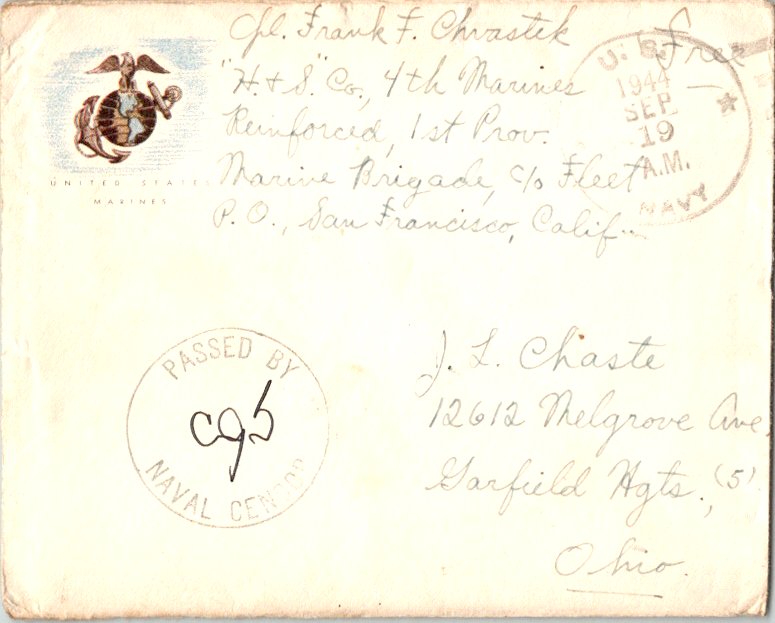 Cpl. Frank F. Chvastek
"H. & S." Co., 4th Marines
Reinforced, 1st Prov.
Marine Brigade, c/o Fleet
P. O., San Francisco, Calif.
Free
U. S.
1944
SEP
19
A.M.
NAVY
UNITED STATES
MARINES
PASSED BY
NAVAL CENSOR
J. L. Chaste
12612 Melgrove Ave,
Garfield Hgts., (5)
Ohio.